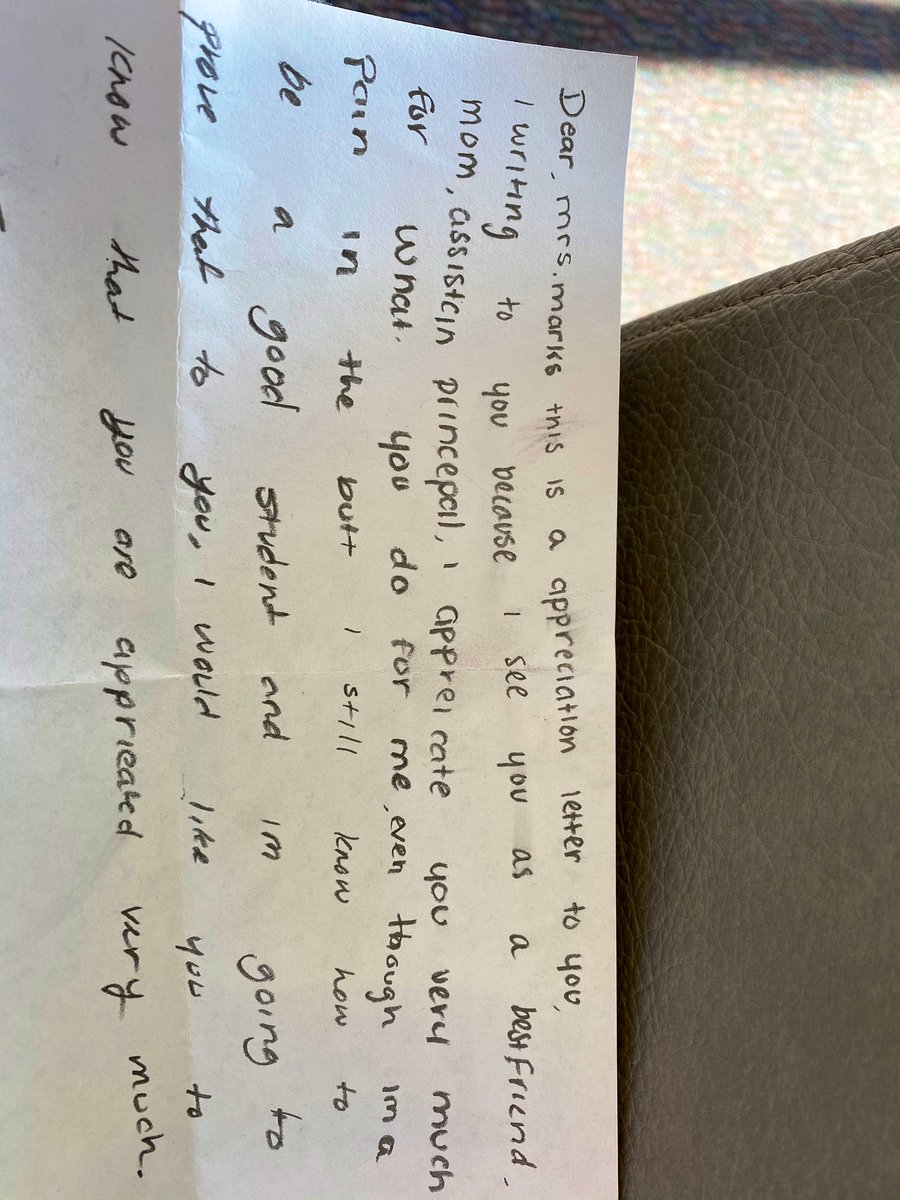 Dear, mrs. marks this is a appreciation letter to you,
I writing to you because I see you as a best friend,
mom, assistain princepall, I appreicate you very much
for what you do for me, even though im a
Pain in the butt I still know how to
be a good student and im going to
prove that to you, I would like you to
know that you are appricated very much.